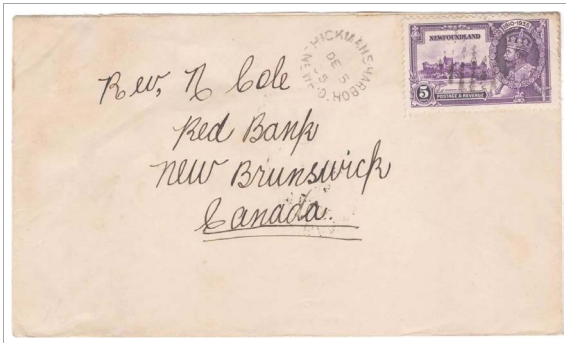 HICKMANS HARBOR
DE 5
35
NEWFOUNDLAND
1910-1935
5
POSTAGE & REVENUE
Rev, N Cole
Red Bank
New Brunswick
Canada.